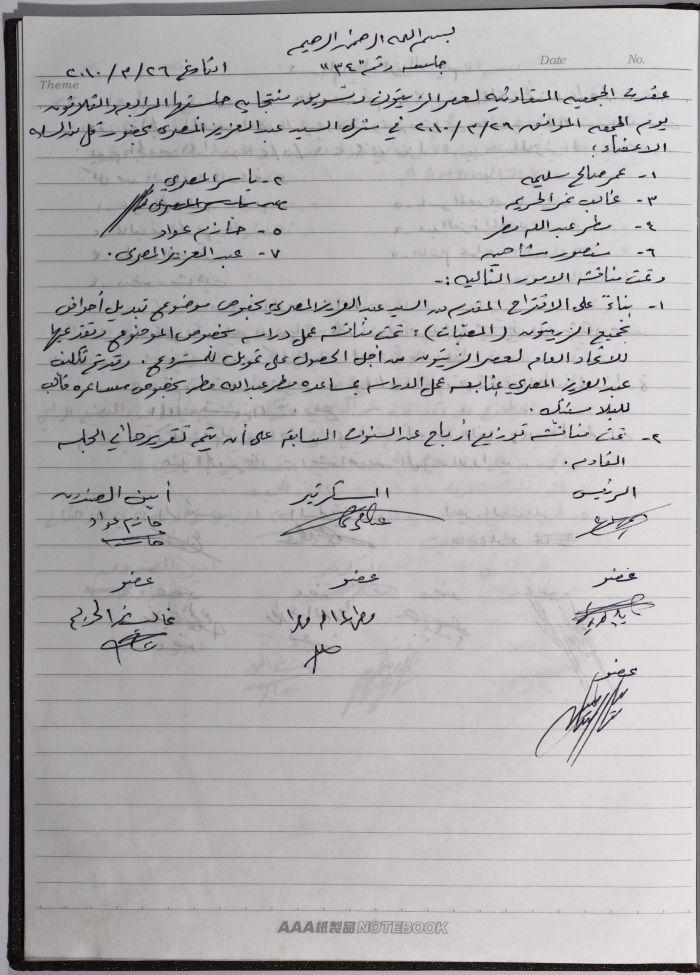 بسم الله الرحمن الرحيم
Theme Date No.
جلسة رقم "٣٤" التاريخ ٢٦/٣/٢٠١٠
عقدت الجمعية التعاونية لعصر الزيتون وتسويق منتجاته جلستها الرابعة والثلاثون
يوم الجمعة الموافق ٢٦/٣/٢٠١٠ في منزل السيد عبد العزيز المصري بحضور كل من السادة
الاعضاء:
١- عمر صالح سليمة ٢- ياسر المصري
٣- غالب نمر الحريمة
٤- مطر عبد الله مطر ٥- حازم عواد
٦- منصور مشاحيت ٧- عبد العزيز المصري.
وتمت مناقشة الامور التالية:-
١- بناءً على الاقتراح المقدم من السيد عبد العزيز المصري بخصوص موضوع تبديل أحواض
تجميع الزيتون (المعتبات): تمت مناقشة عمل دراسة بخصوص الموضوع وتقديمها
للاتحاد العام لعصر الزيتون من اجل الحصول على تمويل للمشروع. وقد تم تكليف
عبد العزيز المصري بمتابعة عمل الدراسة بمساعدة مطر عبد الله مطر بخصوص مساعدة قالب
للبلاستيك.
٢- تمت مناقشة توزيع أرباح عن السنوات السابقة على أن يتم تقريرها في الجلسة
القادمة.
الرئيس السكرتير أمين الصندوق
حازم عواد
عضو عضو عضو
مطر عبد الله مطر غالب نمر الحريمة
عضو
AAA紙製品NOTEBOOK